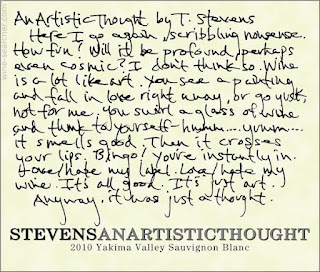 An Artistic Thought by T. Stevens
Here I go again, scribbling nonsense.
How fun? Will it be profound, perhaps
even cosmic? I don't think so. Wine
is a lot like art. You see a painting
and fall in love right away, or go yuck,
not for me. You swirl a glass of wine
and think to yourself-hummm....yumm....
it smells good. Then it crosses
your lips. Bingo! You're instantly in.
Love/hate my label. Love/hate my
wine. It's all good. It's just art.
Anyway. it was just a thought.
STEVENSANARTISTICTHOUGHT
2010 Yakima Valley Sauvignon Blanc
wine-searcher.com